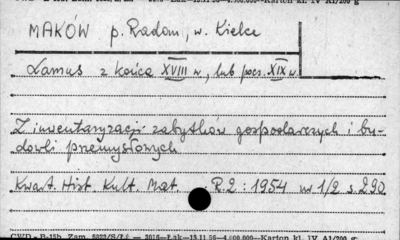 MAKÓW p. Radom, w. Kielce
Lamus z końca XVIII w., lub pocz. XIX w.
Z inwentaryzacji zabytków gospodarczych i bu-
dowli przemysłowych
Kwart. Hist. Kult. Mat. R.2 : 1954 nr 1/2 s. 290
CWD - B-15b. Zam. 5222/S/Łć — 3016—Łak—13.11 56—4.000.000—Karton kl. IV A1/200 g